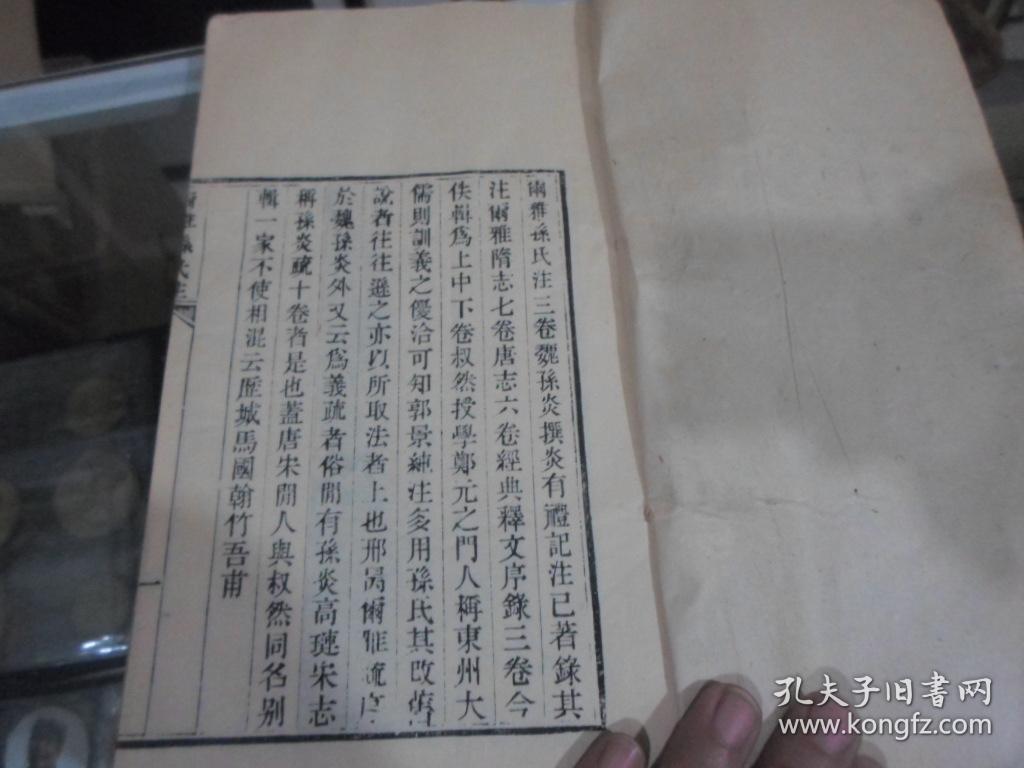 爾雅孫氏注三卷魏孫炎撰炎有禮記注已著錄其
注爾雅隋志七卷唐志六卷經典釋文序錄三卷今
佚輯爲上中下卷叔然授學鄭元之門人稱東州大
儒則訓義之優洽可知郭景純注多用孫氏其改舊
說者往往遜之亦以所取法者上也邢昺爾雅疏序
於魏孫炎外又云爲義疏者俗閒有孫炎高璉宋志
稱孫炎疏十卷者是也蓋唐宋閒人與叔然同名别
輯一家不使相混云歷城馬國翰竹吾甫
爾雅孫氏注
一
孔夫子旧书网
www.kongfz.com